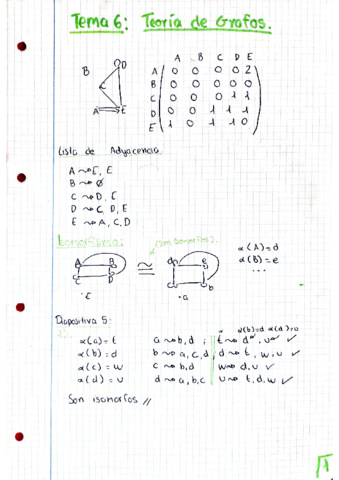 Tema 6: Teoría de Grafos.
A B C D E
A 0 0 0 0 2
B 0 0 0 0 0
C 0 0 0 1 1
D 0 0 1 1 1
E 1 0 1 1 0
B
D
C
A
E
Lista de Adyacencia
A ~> E, E
B ~> ∅
C ~> D, E
D ~> C, D, E
E ~> A, C, D
Isomorfismo:
(son isomorfos).
A B
C D
·E
≅
d e
c b
·a
α(A)=d
α(B)=e
...
Diapositiva 5:
α(a)=t
α(b)=d
α(c)=w
α(d)=u
a ~> b,d ;
b ~> a,c,d ;
c ~> b,d
d ~> a,b,c
α(b)=d
t ~> d, u ✓
d ~> t, w, u ✓
w ~> d, u ✓
u ~> t, d, w ✓
Son isomorfos //
1